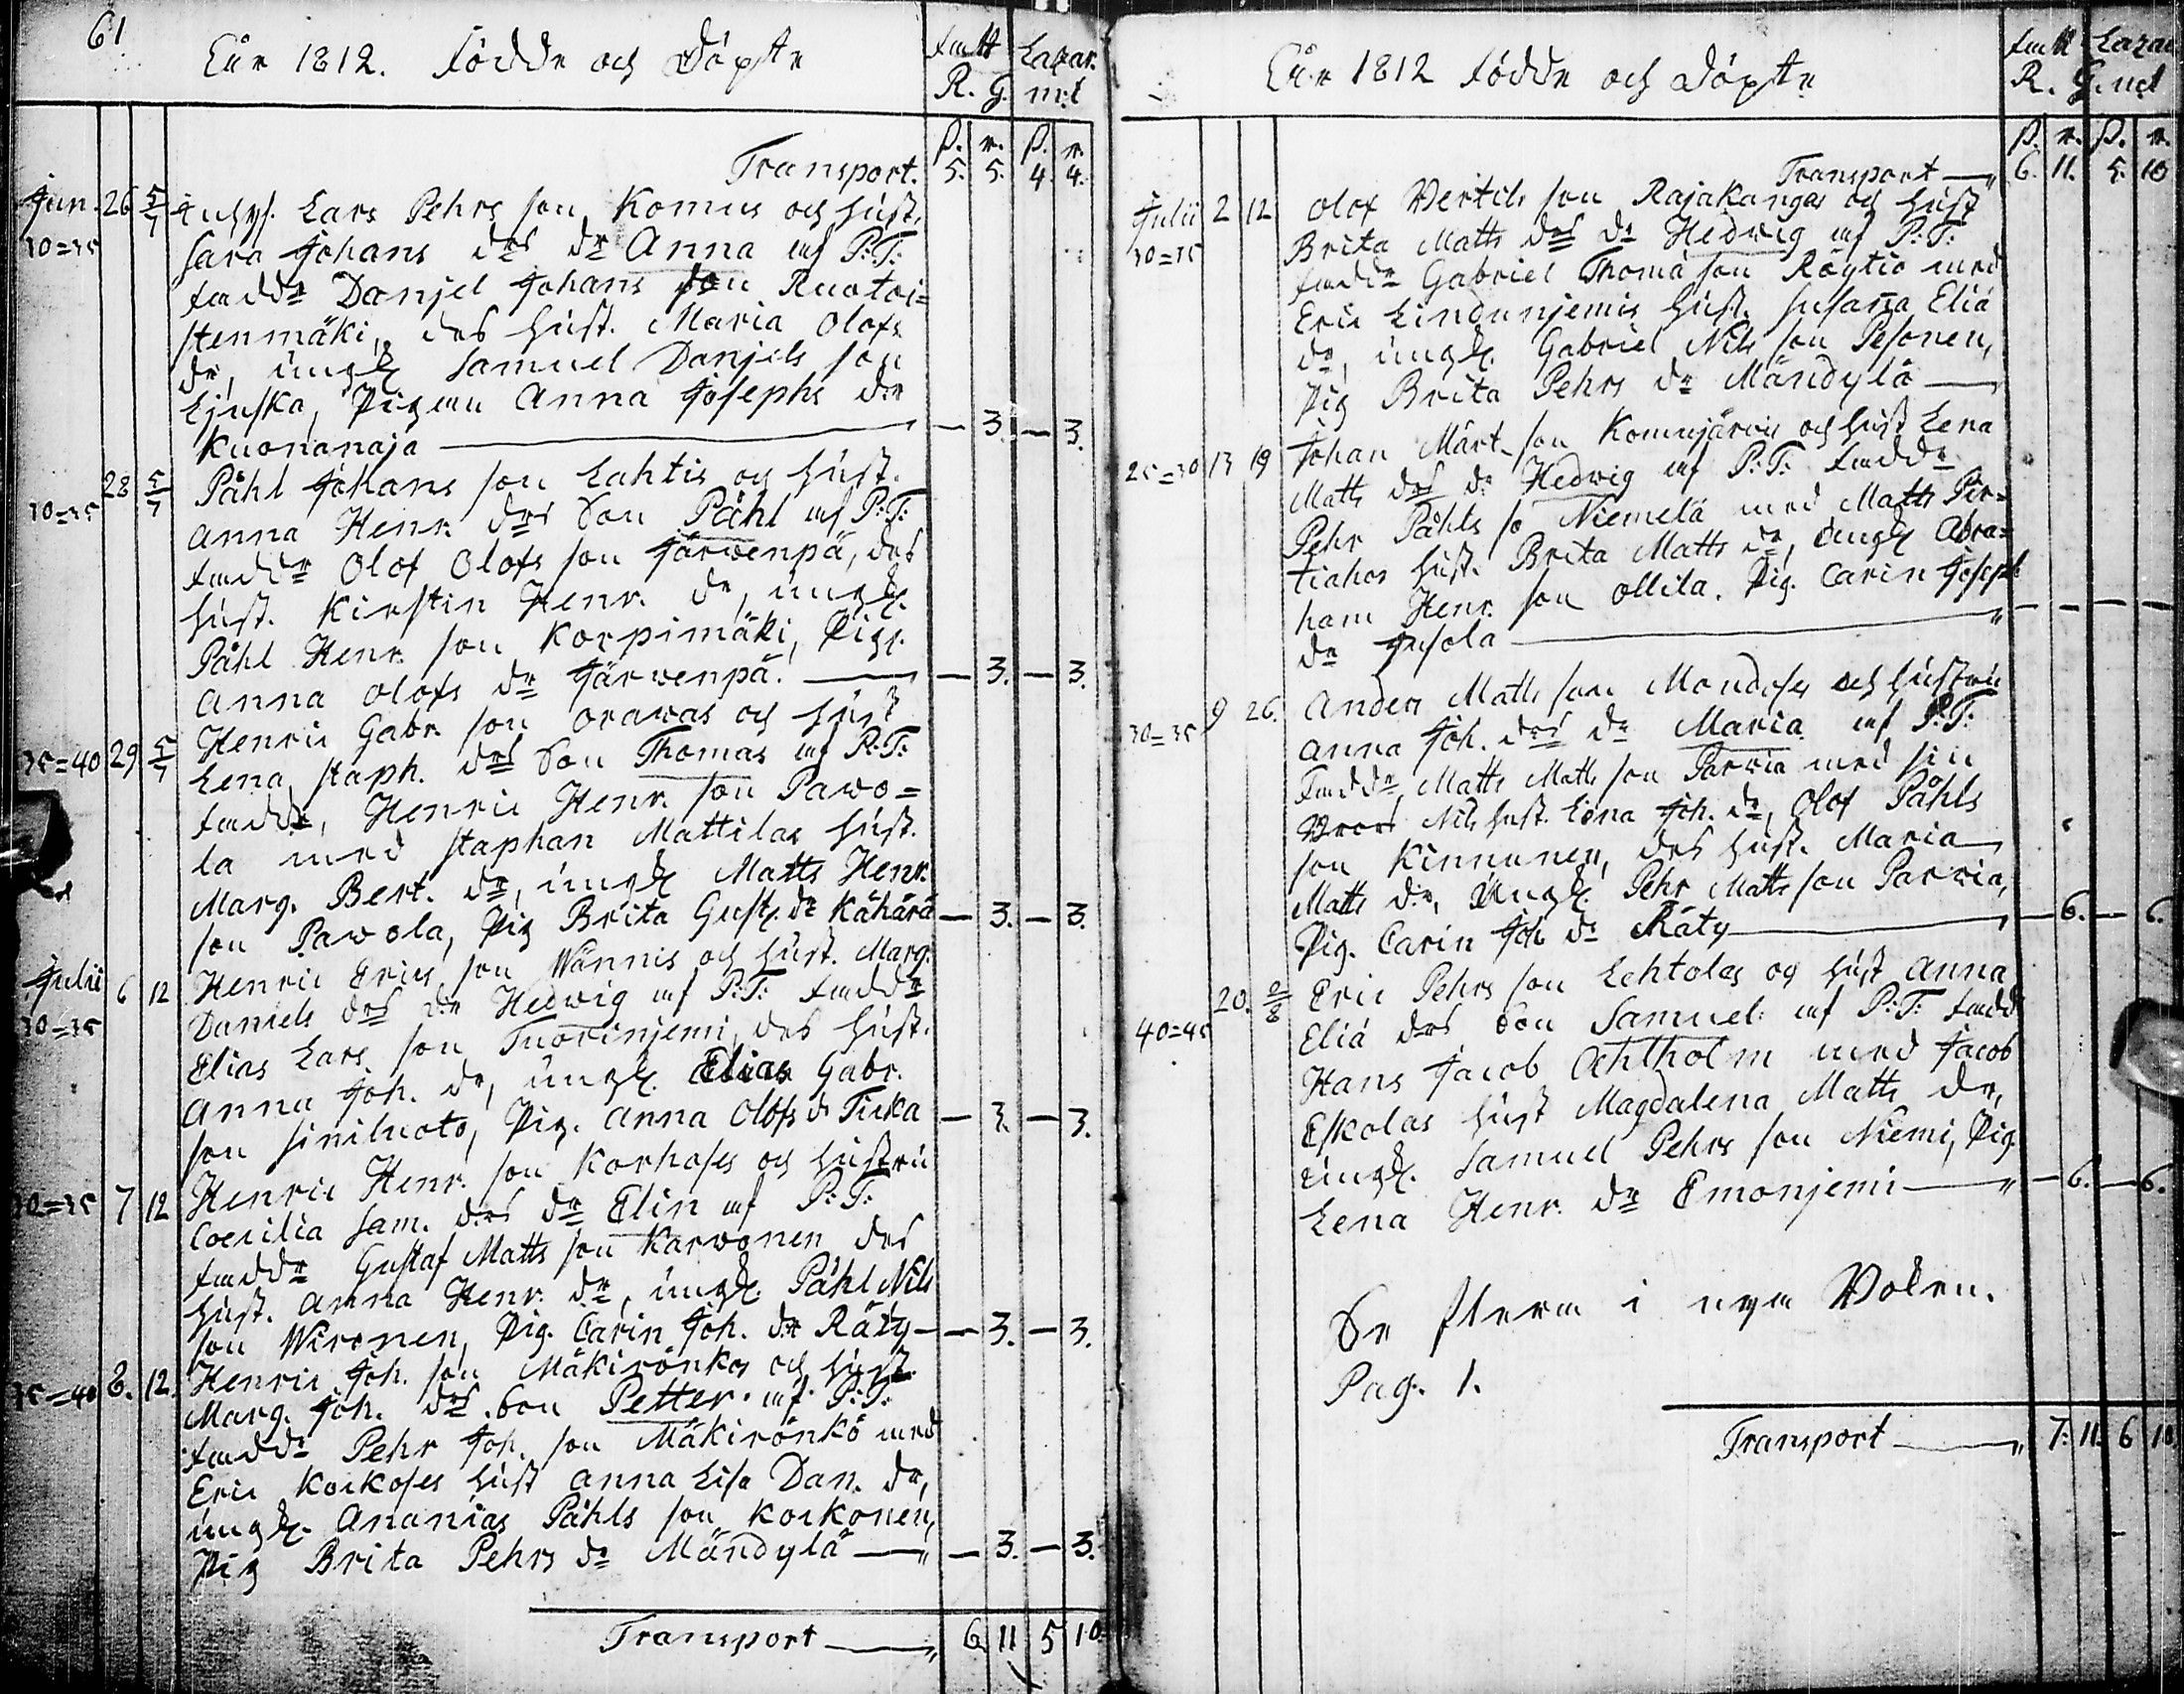 61.
Får 1812. födde och Döpte
Fatt Lazar.
R. G. m:t
ß. r. ß. r.
Transport. 5. 5. 4. 4.
Jun. 26 5/7 Inhys. Lars Pehrs son Komus och hust.
30=35 Sara Johans dr des dr Anna af P:T:
fadde Danjel Johans son Ruotoi=
stenmäki, des hust. Maria Olofs
dr, ungk. Samuel Danjels son
Ljuska, Pigan Anna Josephs dr
Kuonanaja — 3. — 3.
28 5/7 Påhl Johans son Lahtis och hust.
30=35 Anna Henr. drs son Påhl af P:T:
fadde Olof Olofs son Järwenpä, des
hust. Kirstin Henr. dr, ungk.
Påhl Henr. son Korpimäki, Pig.
Anna Olofs dr Järwenpä. — 3. — 3.
Henric Gabr. son Orawas och hust
35=40 29 5/7 Lena Staph. drs Son Thomas af P:T:
fadde, Henric Henr. son Pawo=
la med Staphan Mattilas hust.
Marg. Bert. dr, ungk Matts Henr.
son Pawola, Pig Brita Gust. dr Kähärä — 3. — 3.
Julii 6 12 Henric Erics son Wännis och hust. Marg.
30=35 Daniels drs dr Hedwig af P:T: fadde
Elias Lars son Tuorinjemi, des hust.
Anna Joh. dr, ungk. Elias Gabr.
son Siniluoto, Pig. Anna Olofs dr Tuka — 3. — 3.
Henric Henr. son Korhoses och hustru
30=35 7 12 Coecilia Sam. drs dr Elin af P:T:
fadde Gustaf Matts son Karwonen des
hust. Anna Henr. dr, ungk. Påhl Nils
son Wironen, Pig. Carin Joh. dr Räty — 3. — 3.
Henric Joh. son Mäkirönkös och hust.
35=40 8. 12. Marg. Joh. drs Son Petter af P:T:
fadde Pehr Joh. son Mäkirönkö med
Eric Koikoses hust Anna Lisa Dan. dr,
ungk. Ananias Påhls son Koikonen,
Pig Brita Pehrs dr Mändylä — 3. — 3.
Transport — 6. 11 5 10
Får 1812 födde och Döpte
Fatt Lazar
R. G. m:t
ß. r. ß. r.
Transport — 6. 11. 5. 10
Julii 2 12 Olof Bertils son Rajakangas och hust
30=35 Brita Matts drs dr Hedwig af P:T:
fadde Gabriel Thomä son Röytiö med
Eric Lindunjemis hust. Susanna Eliä
dr, ungk. Gabriel Nils son Pesonen,
Pig Brita Pehrs dr Mändylä —
Johan Märt. son Komujärvis och hust Lena
25=30 13 19 Matts drs dr Hedwig af P:T: fadde
Pehr Påhls so Niemelä med Matts Pir=
tiahos hust. Brita Matts dr, ungk Abra=
ham Henr. son Ollila. Pig. Carin Joseph
dr Jusola — — — —
Anders Matts son Mondoses och hustru
30=35 9 26. Anna Joh. drs dr Maria af P:T:
Fadde, Matts Matts son Parvia med sin
Bror Nils hust. Lena Joh. dr, Olof Påhls
son Kinnunen, des hust. Maria
Matts dr, Ungk. Pehr Matts son Parvia,
Pig. Carin Joh dr Räty — 6. — 6.
Eric Pehrs son Lehtolas och hust Anna
40=45 20. 2/8 Eliä drs Son Samuel af P:T: fadd
Hans Jacob Ahlholm med Jacob
Eskolas hust Magdalena Matts dr,
ungk. Samuel Pehrs son Niemi, Pig.
Lena Henr. dr Emonjemi — 6. — 6.
Se flera i nya Boken.
Pag. 1.
Transport — 7. 11. 6 10